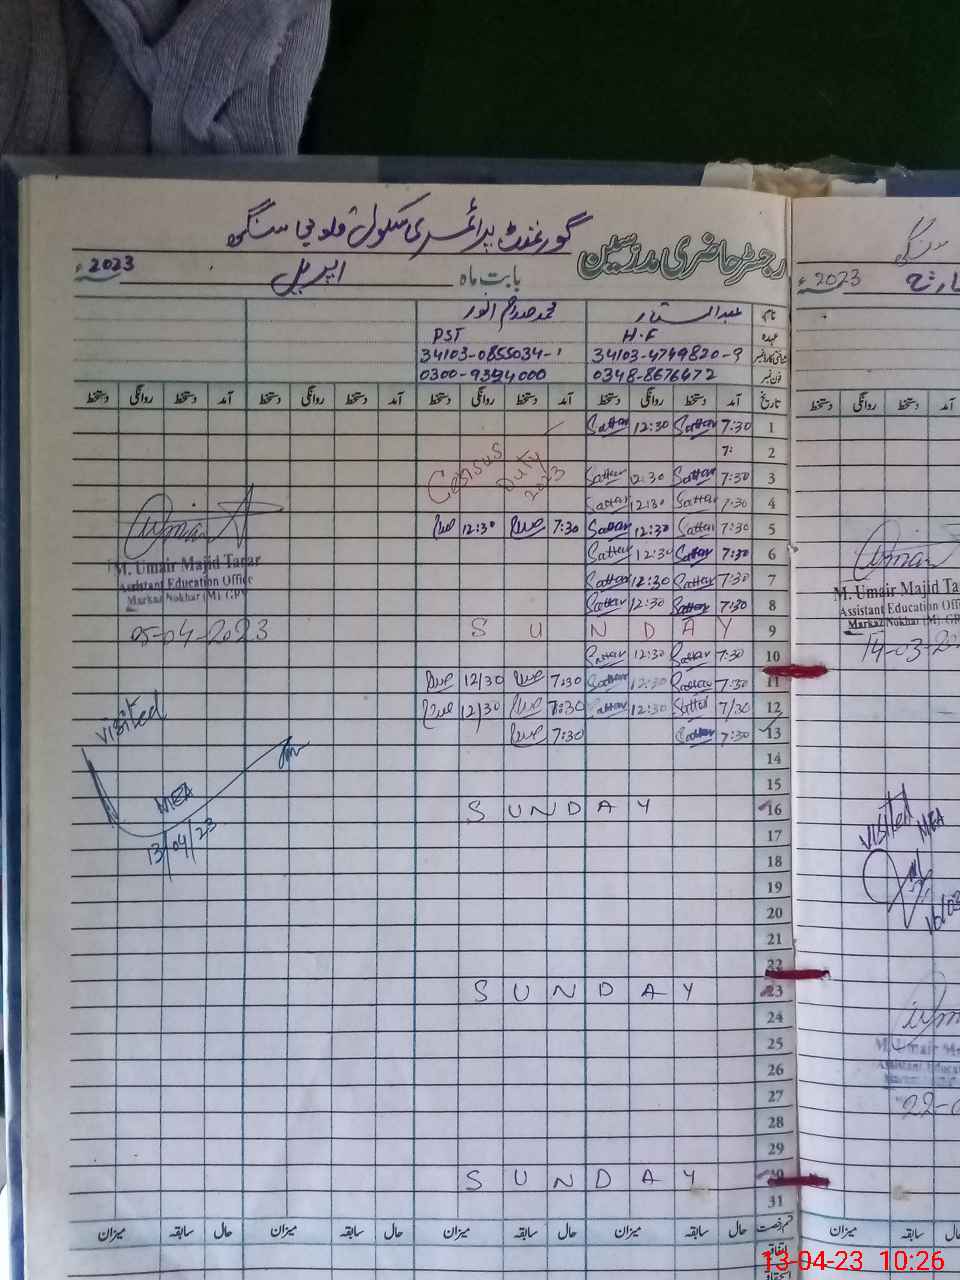 گورنمنٹ پرائمری سکول قلوجی سنگی
رجسٹر حاضری مدرسین
بابت ماہ اپریل 2023ء
نام عبدالستار محمد صدام انور
عہدہ H.F PST
34103-4749820-9 34103-0855034-1
فون نمبر 0348-8676472 0300-9394000
تاریخ آمد دستخط روانگی دستخط آمد دستخط روانگی دستخط آمد دستخط روانگی دستخط آمد دستخط روانگی دستخط
1 7:30 Sattar 12:30 Sattar
2 7:
Census Duty 2023
3 7:30 Sattar 12:30 Sattar
4 7:30 Sattar 12:30 Sattar
5 7:30 Sattar 12:30 Sattar 7:30 12:30
6 7:30 Sattar 12:30 Sattar
7 7:30 Sattar 12:30 Sattar
8 7:30 Sattar 12:30 Sattar
9 SUNDAY
10 7:30 Sattar 12:30 Sattar
11 7:30 Sattar 12:30 Sattar 7:30 12/30
12 7/30 Sattar 12:30 Sattar 7:30 12/30
13 7:30 Sattar 7:30
14
15
16 SUNDAY
17
18
19
20
21
22
23 SUNDAY
24
25
26
27
28
29
30 SUNDAY
31
حال سابقہ میزان حال سابقہ میزان حال سابقہ میزان حال سابقہ میزان
M. Umair Majid Tarar
Assistant Education Office
Markaz Nokhar (M) GRW
05-04-2023
visited
MEA
13/04/23
سنگی
مارچ 2023ء
آمد دستخط روانگی دستخط
M. Umair Majid Ta
Assistant Education Offi
Markaz Nokhar (M) GR
14-03-20
visited
MEA
میزان سابقہ
13-04-23 10:26